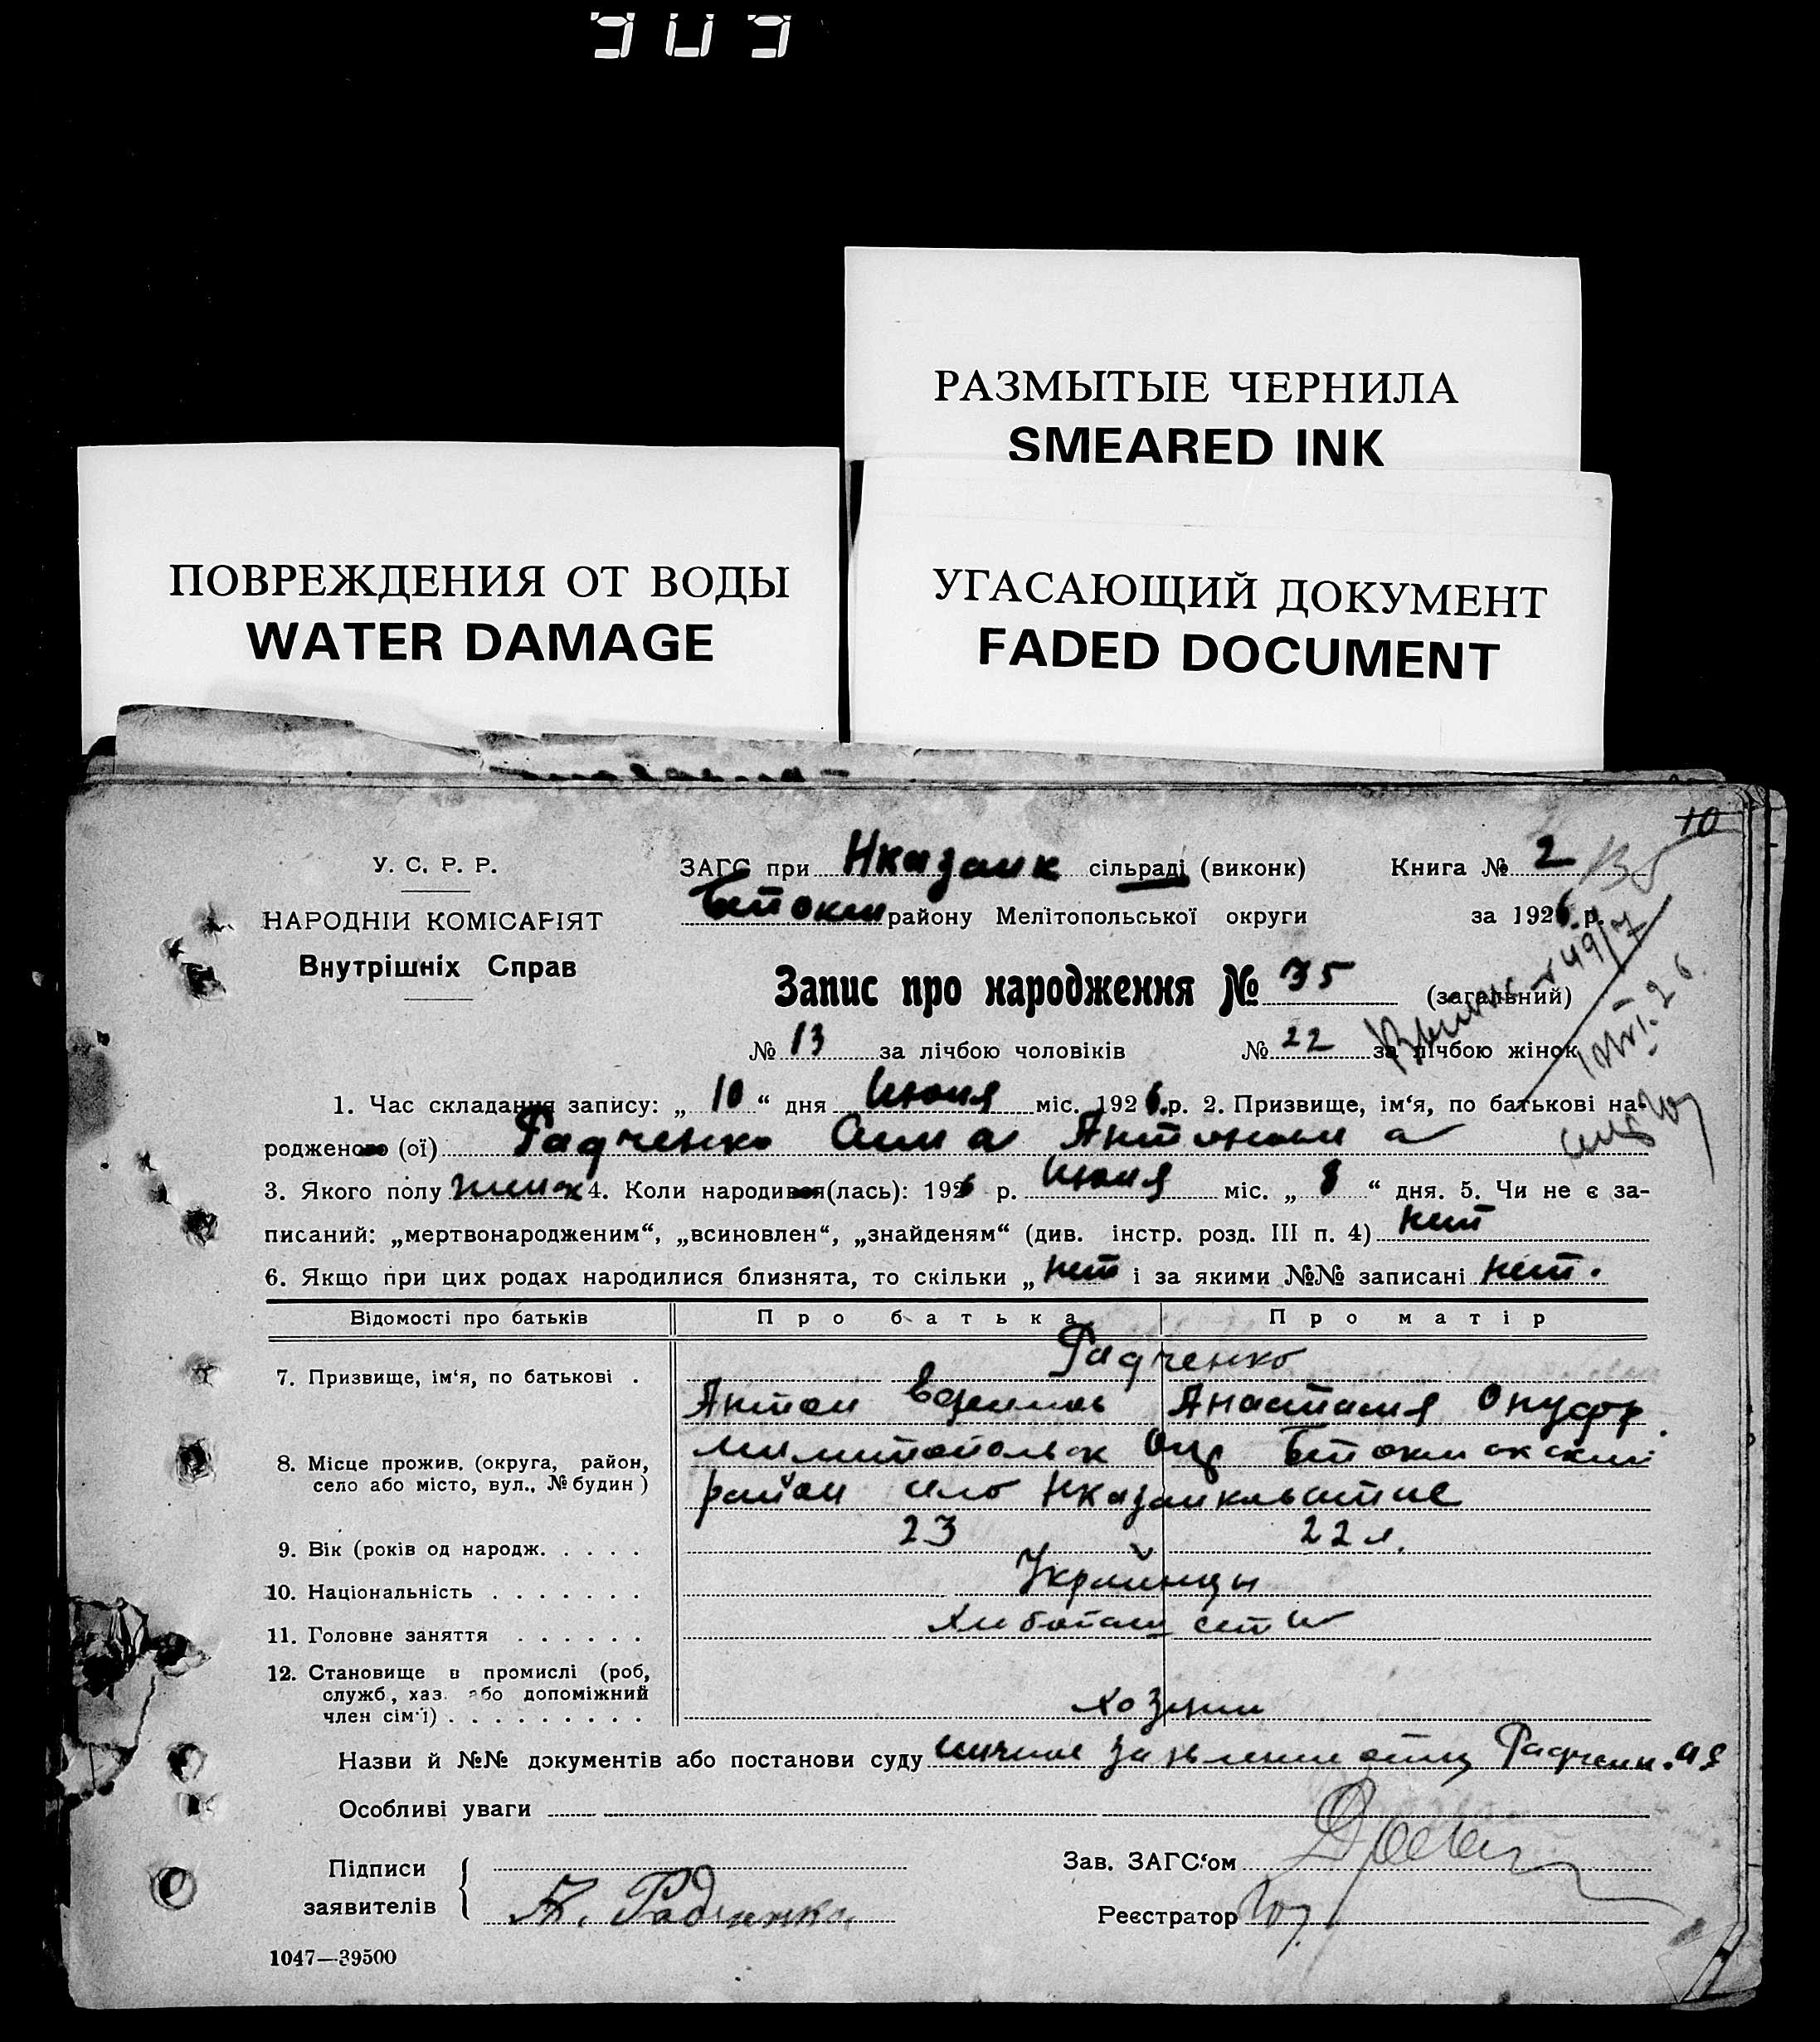 909
РАЗМЫТЫЕ ЧЕРНИЛА
SMEARED INK
ПОВРЕЖДЕНИЯ ОТ ВОДЫ
WATER DAMAGE
УГАСАЮЩИЙ ДОКУМЕНТ
FADED DOCUMENT
10
У. С. Р. Р.
НАРОДНІЙ КОМІСАРІЯТ
Внутрішніх Справ
ЗАГС при Нказанк сільраді (виконк) Книга № 2
району Мелітопольської округи за 1926 р.
Запис про народження № 35 (загальний)
№ 13 за лічбою чоловіків № 22 за лічбою жінок
1. Час складання запису: „ 10 “ дня Июня міс. 1926 р. 2. Призвище, ім‘я, по батькові на-
родженого (ої) Радченко Анна Антоновна
3. Якого полу женск 4. Коли народився (лась): 1926 р. Июня міс. „ 8 “ дня. 5. Чи не є за-
писаний: „мертвонародженим“, „всиновлен“, „знайденям“ (див. інстр. розд. III п. 4) нет
6. Якщо при цих родах народилися близнята, то скільки „ нет і за якими №№ записані нет.
Відомості про батьків Про батька Про матір
7. Призвище, ім‘я, по батькові . Радченко
Антон Анастасия Онуфр.
8. Місце прожив. (округа, район, село або місто, вул., № будин)
район село
9. Вік (років од народж. . . . . 23 22 л.
10. Національність . . . . . . . Украйнцы
11. Головне заняття . . . . . .
12. Становище в промислі (роб, служб, хаз. або допоміжний член сім‘ї) . . . . . . . . . Хозяин
Назви й №№ документів або постанови суду личное заявление отца Радченк.
Особливі уваги
Підписи заявителів А. Радченко
Зав. ЗАГС‘ом
Реєстратор
1047—39500